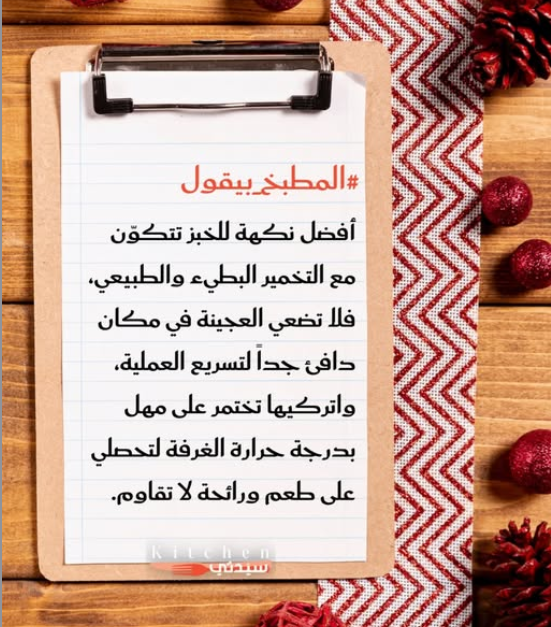 #المطبخ_بيقول
أفضل نكهة للخبز تتكوّن
مع التخمير البطيء والطبيعي،
فلا تضعي العجينة في مكان
دافئ جداً لتسريع العملية،
واتركيها تختمر على مهل
بدرجة حرارة الغرفة لتحصلي
على طعم ورائحة لا تقاوم.
kitchen
سيدتي